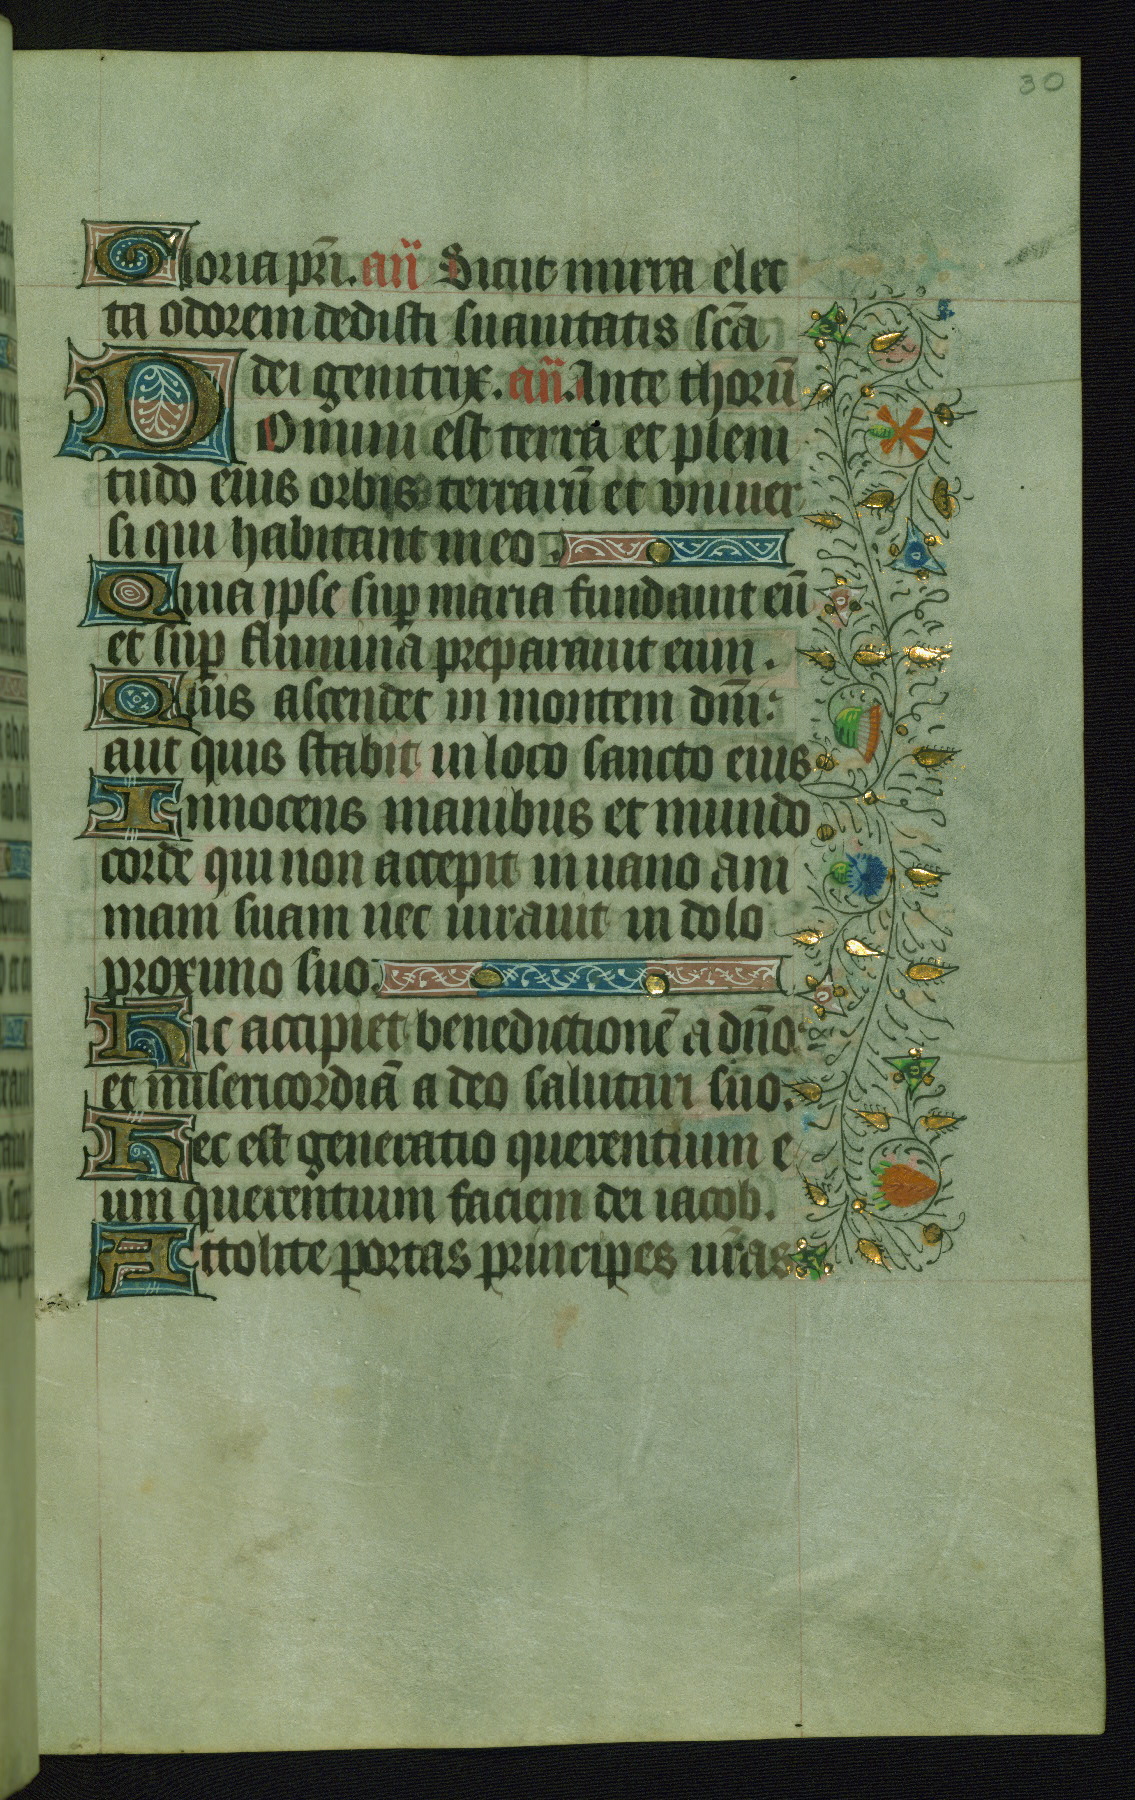 30
Gloria pr̃i. añ Sicut mirra elec
ta odorem dedisti suauitatis sc̃a
dei genitrix. añ. Ante thorũ
Domini est terra et pleni
tudo eius orbis terrarũ et vniuer
si qui habitant in eo.
Quia ipse sup̱ maria fundauit eũ
et sup̱ flumina preparauit eum.
Quis ascendet in montem dñi:
aut quis stabit in loco sancto eius
Innocens manibus et mundo
corde qui non accepit in uano ani
mam suam nec iurauit in dolo
proximo suo.
Hic accipiet benedictionẽ a dño
et misericordiã a deo salutari suo.
Hec est generatio querentium e
um querentium faciem dei iacob.
Attolite portas principes ur̃as